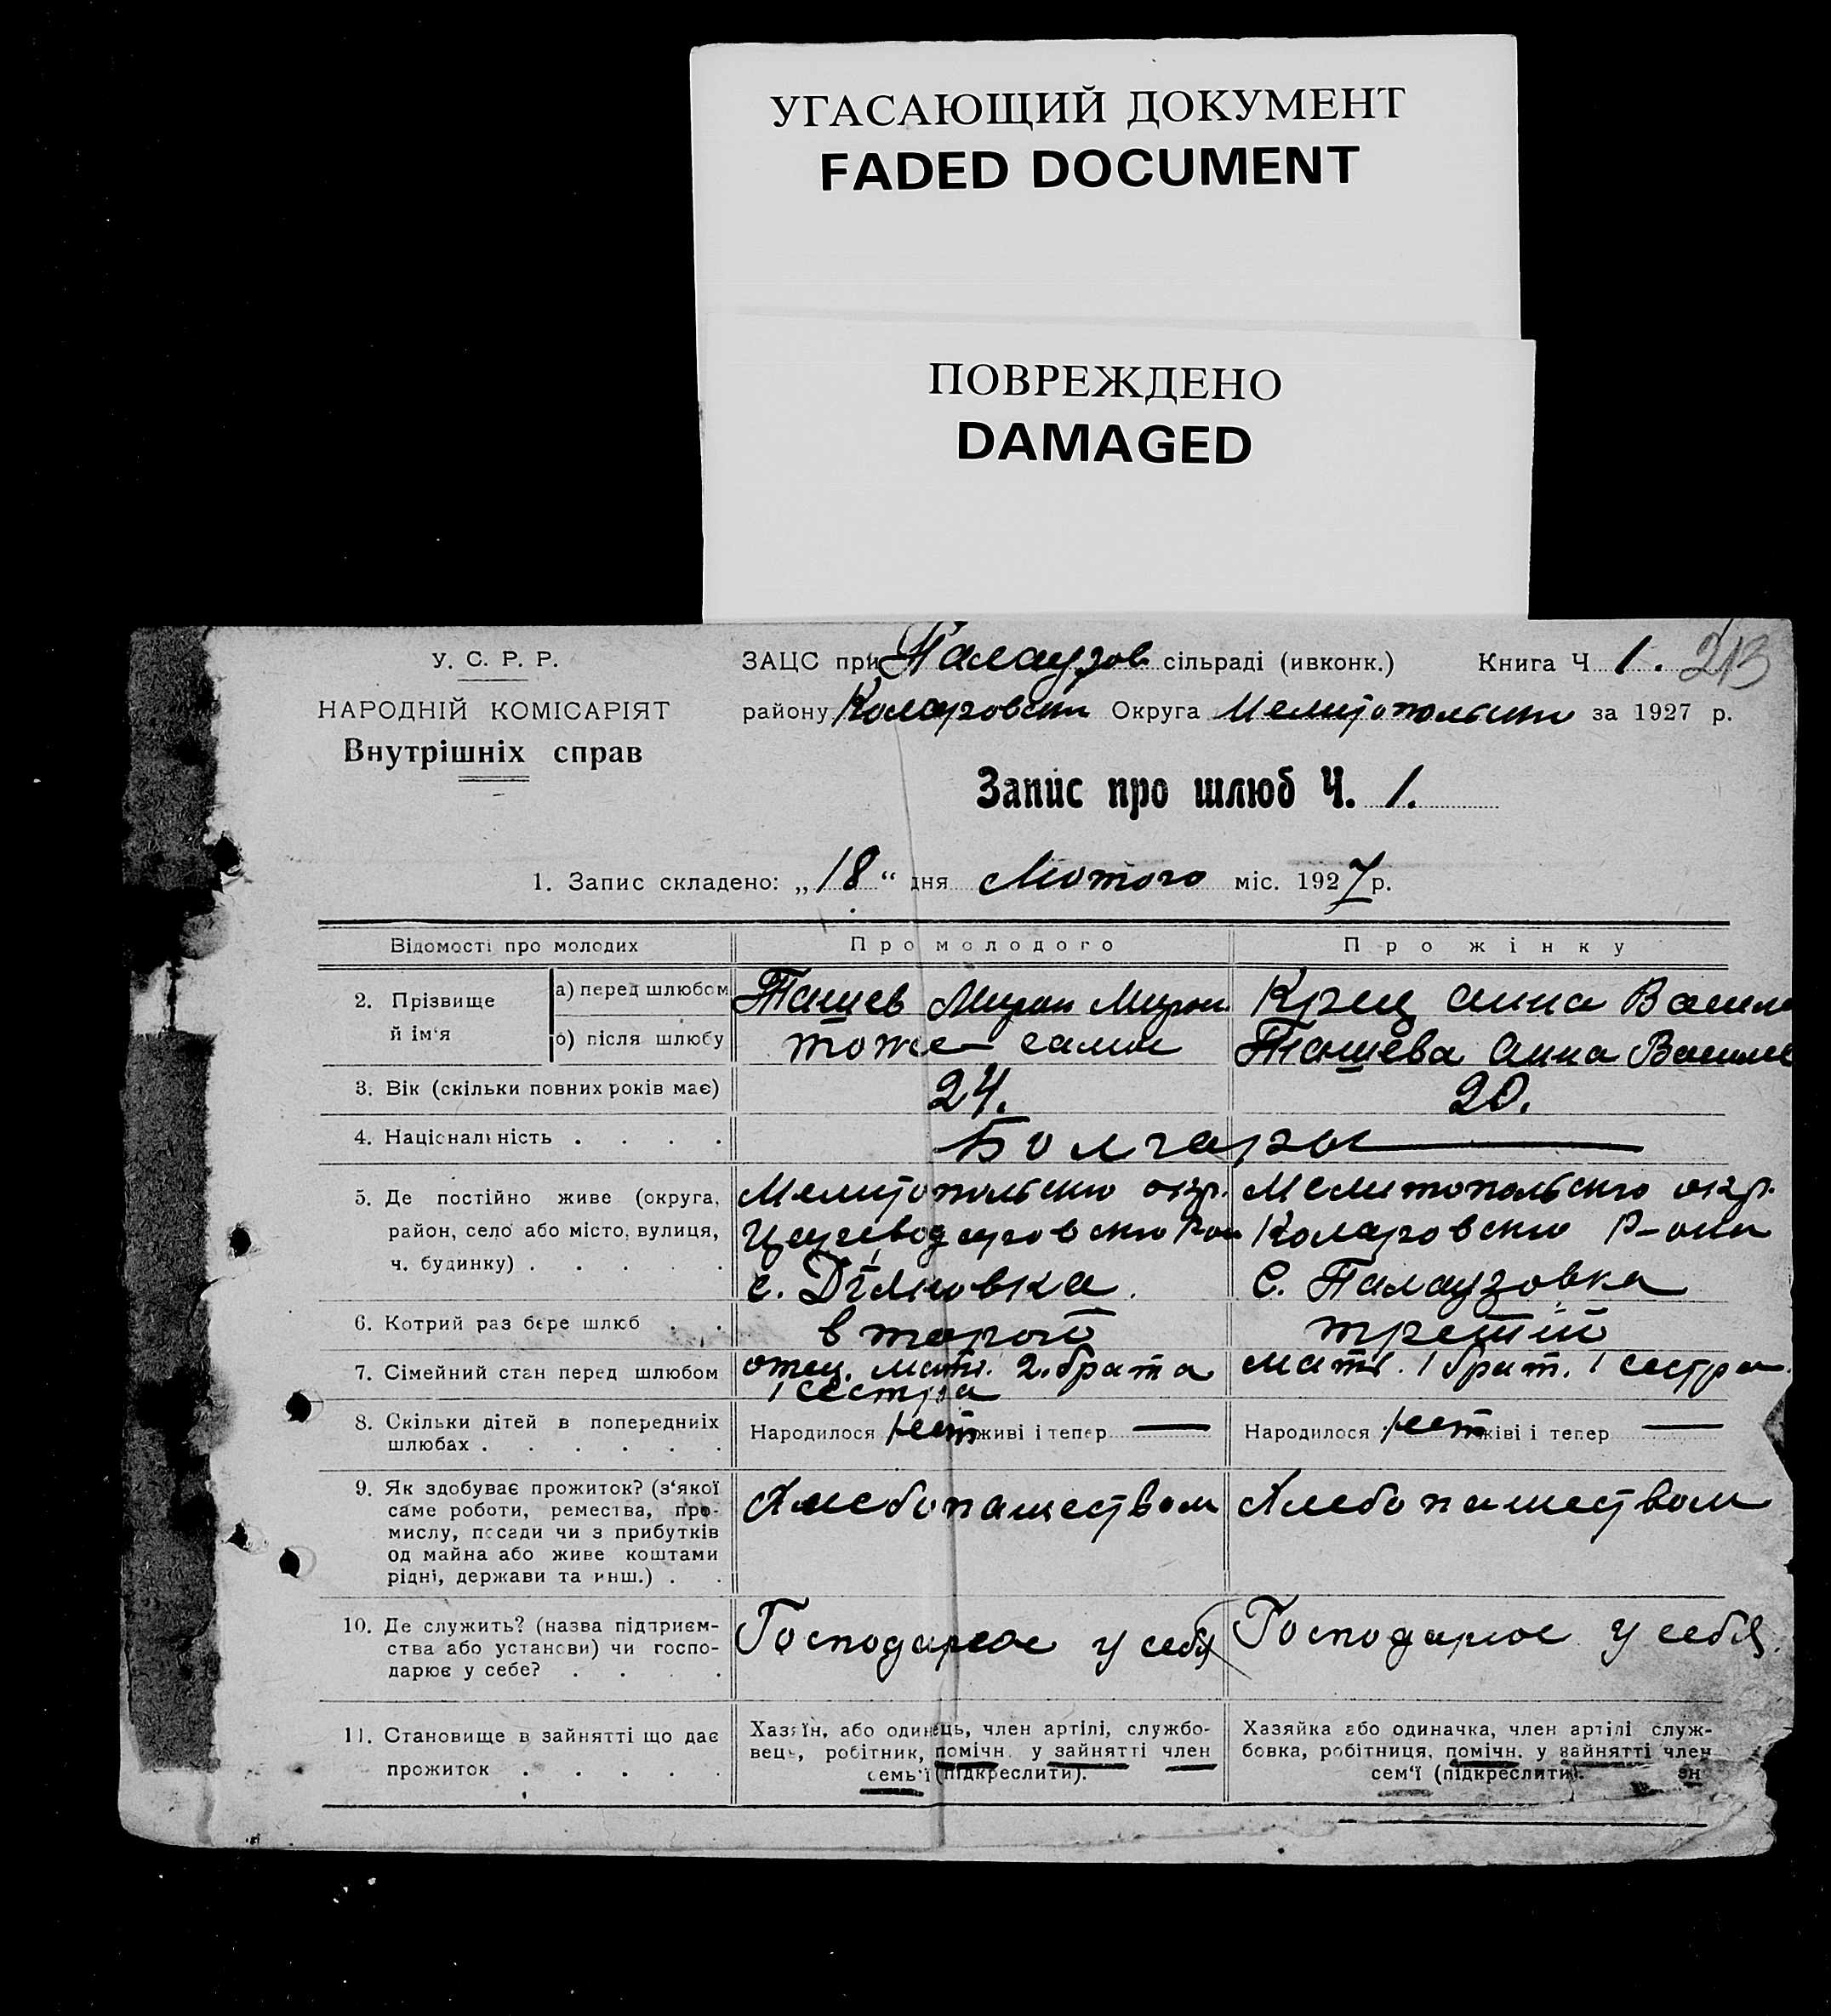 УГАСАЮЩИЙ ДОКУМЕНТ
FADED DOCUMENT
ПОВРЕЖДЕНО
DAMAGED
У. С. Р. Р.
НАРОДНІЙ КОМІСАРІЯТ
Внутрішніх справ
ЗАЦС при Палаузов сільраді (ивконк.) Книга Ч 1. 213
району Коларовськи Округа Мелитопольски за 1927 р.
Запис про шлюб Ч. 1.
1. Запис складено: „18“ дня Лютого міс. 1927 р.
Відомості про молодих Про молодого Про жінку
2. Прізвище й ім'я
а) перед шлюбом Ташев Мирон Мирон. Крец Анна Васил
б) після шлюбу тоже самы Ташева Анна Василе
3. Вік (скільки повних років має) 24. 20.
4. Національність . . . . Болгары
5. Де постійно живе (округа, Мелитопольско окр. Мелитопольско окр.
район, село або місто, вулиця, Коларовско Р-она
ч. будинку) . . . . . с. Діяновка. С. Палаузовка
6. Котрий раз бере шлюб . . второй третій
7. Сімейний стан перед шлюбом отец. мать. 2. брата мать. 1 брат. 1 сестра.
1 сестра
8. Скільки дітей в попередніх
шлюбах . . . . . . Народилося живі і тепер — Народилося живі і тепер —
9. Як здобуває прожиток? (з'якої
саме роботи, ремества, про- Хлебопашеством Хлебопашеством
мислу, посади чи з прибутків
од майна або живе коштами
рідні, держави та инш.) . .
10. Де служить? (назва підприєм-
ства або установи) чи госпо- Господарює у себя Господарює у себя.
дарює у себе? . . . .
11. Становище в зайнятті що дає Хазяїн, або одинець, член артілі, службо- Хазяйка або одиначка, член артілі служ-
прожиток . . . . . вець, робітник, помічн. у зайнятті член бовка, робітниця, помічн. у зайнятті член
семь'ї (підкреслити). сем'ї (підкреслити).